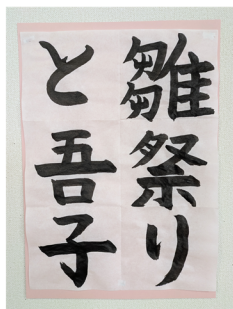 雛祭り
と吾子